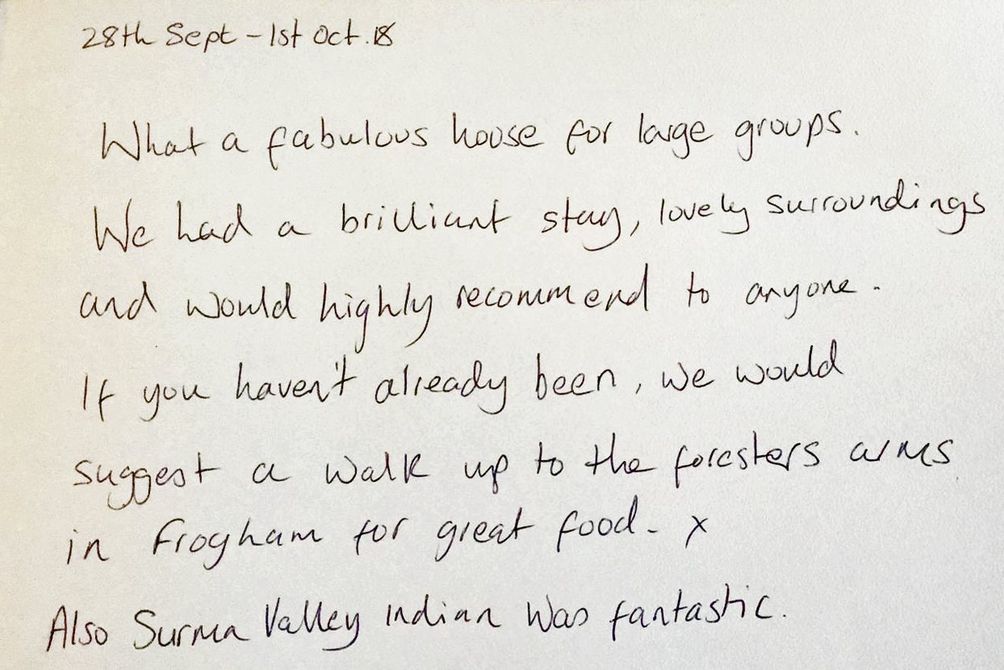 28th Sept - 1st Oct. 18
What a fabulous house for large groups.
We had a brilliant stay, lovely surroundings
and would highly recommend to anyone.
If you haven't already been, we would
suggest a walk up to the foresters arms
in Frogham for great food. x
Also Surma Valley Indian was fantastic.